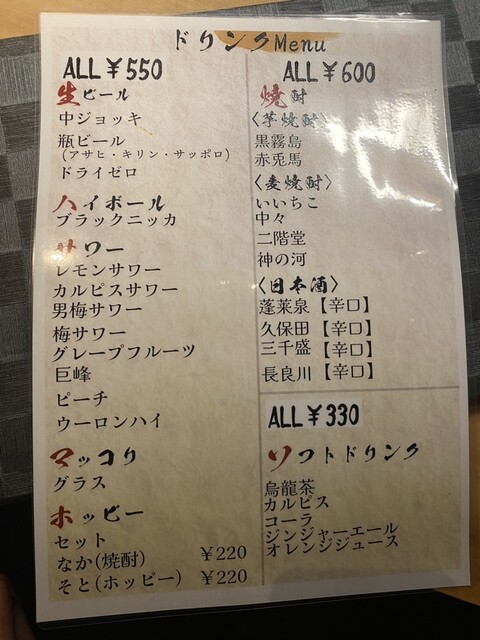 ドリンクMenu
ALL¥550
生ビール
中ジョッキ
瓶ビール
(アサヒ・キリン・サッポロ)
ドライゼロ
ハイボール
ブラックニッカ
サワー
レモンサワー
カルピスサワー
男梅サワー
梅サワー
グレープフルーツ
巨峰
ピーチ
ウーロンハイ
マッコリ
グラス
ホッピー
セット
なか(焼酎) ¥220
そと(ホッピー) ¥220
ALL¥600
焼酎
〈芋焼酎〉
黒霧島
赤兎馬
〈麦焼酎〉
いいちこ
中々
二階堂
神の河
〈日本酒〉
蓬莱泉【辛口】
久保田【辛口】
三千盛【辛口】
長良川【辛口】
ALL¥330
ソフトドリンク
烏龍茶
カルピス
コーラ
ジンジャーエール
オレンジジュース